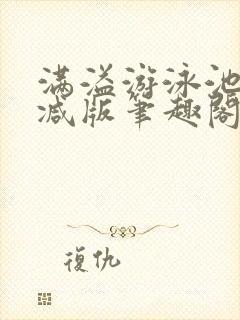 满溢游泳池
减版筆趣閣
復仇